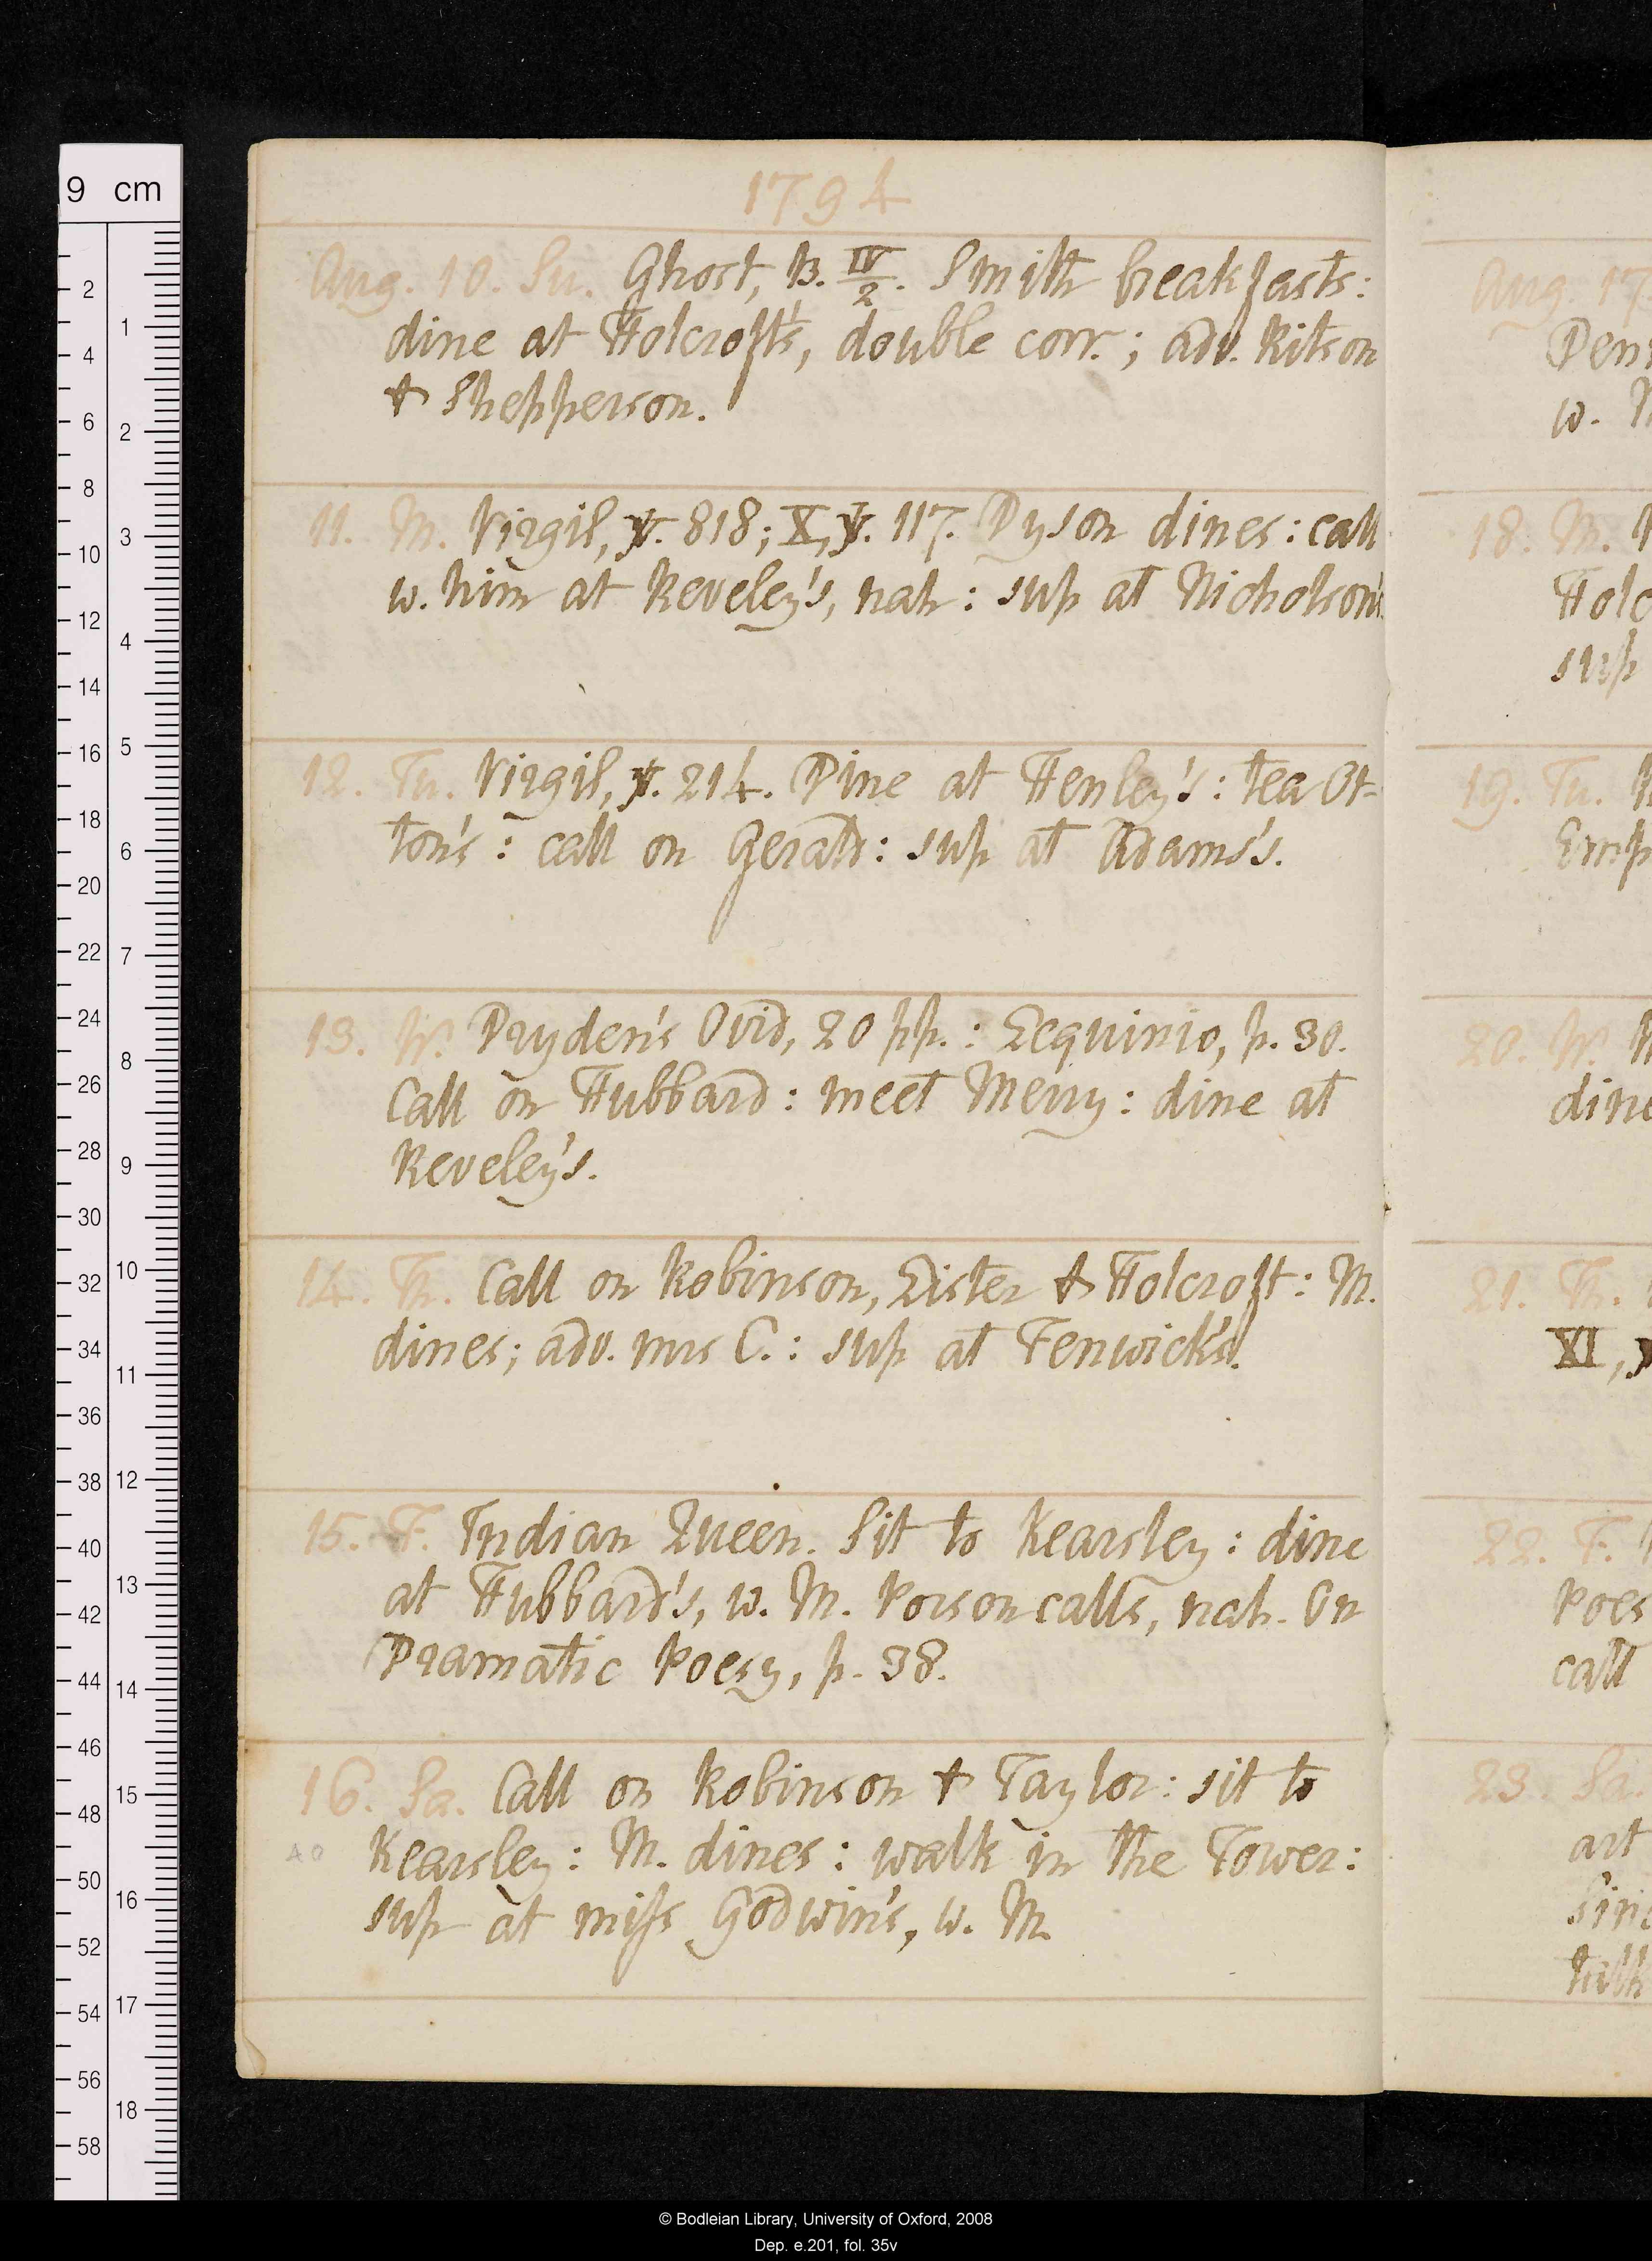 1794
Aug. 10. Su. Ghost, B. IV/2. Smith breakfasts:
dine at Holcroft's, double corr.; adv. Ritson
& Shepperson.
11. M. Virgil, ỳ. 818; X, ỳ. 117. Dyson dines: call
w. him at Reveley's, nah: sup at Nicholson's.
12. Tu. Virgil, ỳ. 214. Dine at Henley's: tea Ot=
ton's: call on Gerald: sup at Adams's.
13. W. Dryden's Ovid, 20 pp.: Lequinio, p. 30.
Call on Hubbard: meet Merry: dine at
Reveley's.
14. Th. Call on Robinson, Lister & Holcroft: M.
dines; adv. mrs C.: sup at Fenwick's.
15. F. Indian Queen. Sit to Kearsley: dine
at Hubbard's, w. M. Porson calls, nah. On
Dramatic Poesy, p. 38.
16. Sa. Call on Robinson & Taylor: sit to
Kearsley: M. dines: walk in the Tower:
sup at miss Godwin's, w. M.
Aug. 17
w.
18. M.
Holc
sup
19. Tu.
20. W.
dine
21. Th.
XI,
22. F.
Poes
call
23. Sa.
art
9 cm
2
4
6
8
10
12
14
16
18
20
22
24
26
28
30
32
34
36
38
40
42
44
46
48
50
52
54
56
58
1
2
3
4
5
6
7
8
9
10
11
12
13
14
15
16
17
18
© Bodleian Library, University of Oxford, 2008
Dep. e.201, fol. 35v